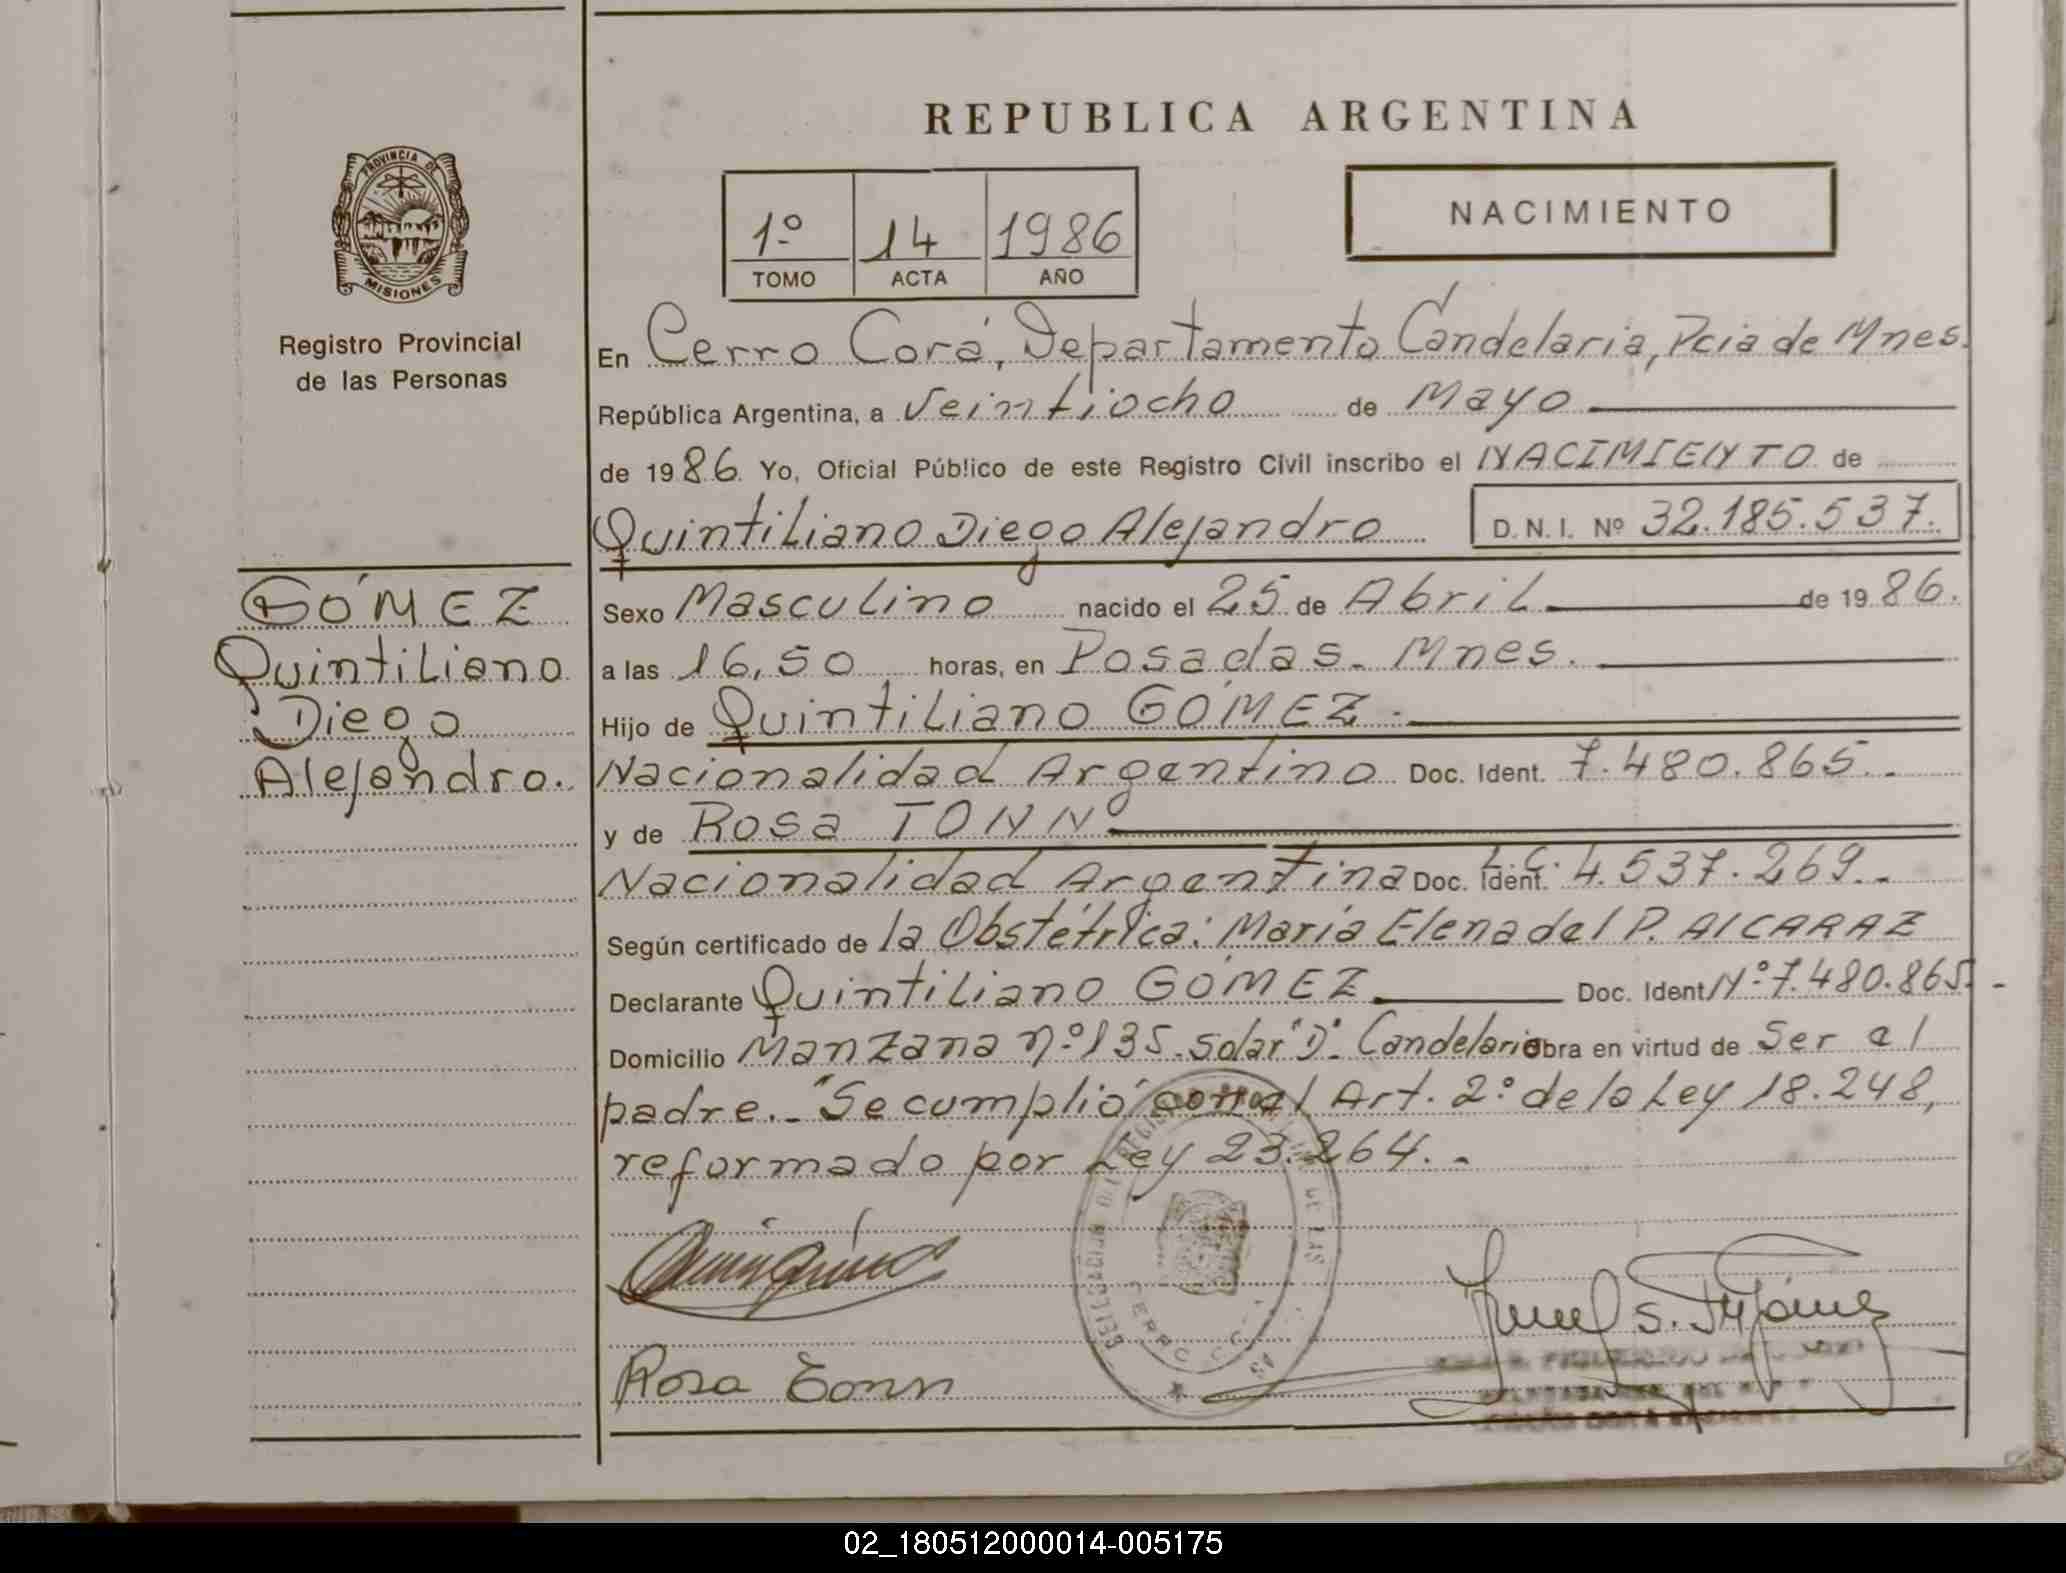 REPUBLICA ARGENTINA
PROVINCIA DE
MISIONES
Registro Provincial
de las Personas
1º 14 1986
TOMO ACTA AÑO
NACIMIENTO
En Cerro Corá, Departamento Candelaria, Pcia de Mnes.
República Argentina, a veintiocho de Mayo
de 1986. Yo, Oficial Público de este Registro Civil inscribo el NACIMIENTO de
Quintiliano Diego Alejandro D.N.I. Nº 32.185.537.
GÓMEZ
Quintiliano
Diego
Alejandro.
Sexo Masculino nacido el 25 de Abril de 1986.
a las 16,50 horas, en Posadas. Mnes.
Hijo de Quintiliano GÓMEZ.
Nacionalidad Argentino Doc. Ident. 7.480.865.
y de Rosa TONN
Nacionalidad Argentina Doc. Ident. L.C. 4.537.269.
Según certificado de la Obstétrica: María Elena del P. AlCARAZ
Declarante Quintiliano GÓMEZ Doc. Ident Nº 7.480.865.
Domicilio Manzana nº 135. Solar "D". Candelaria obra en virtud de Ser el
padre. "Se cumplió con el Art. 2º de la Ley 18.248,
reformado por Ley 23.264.
Rosa Tonn
02_180512000014-005175